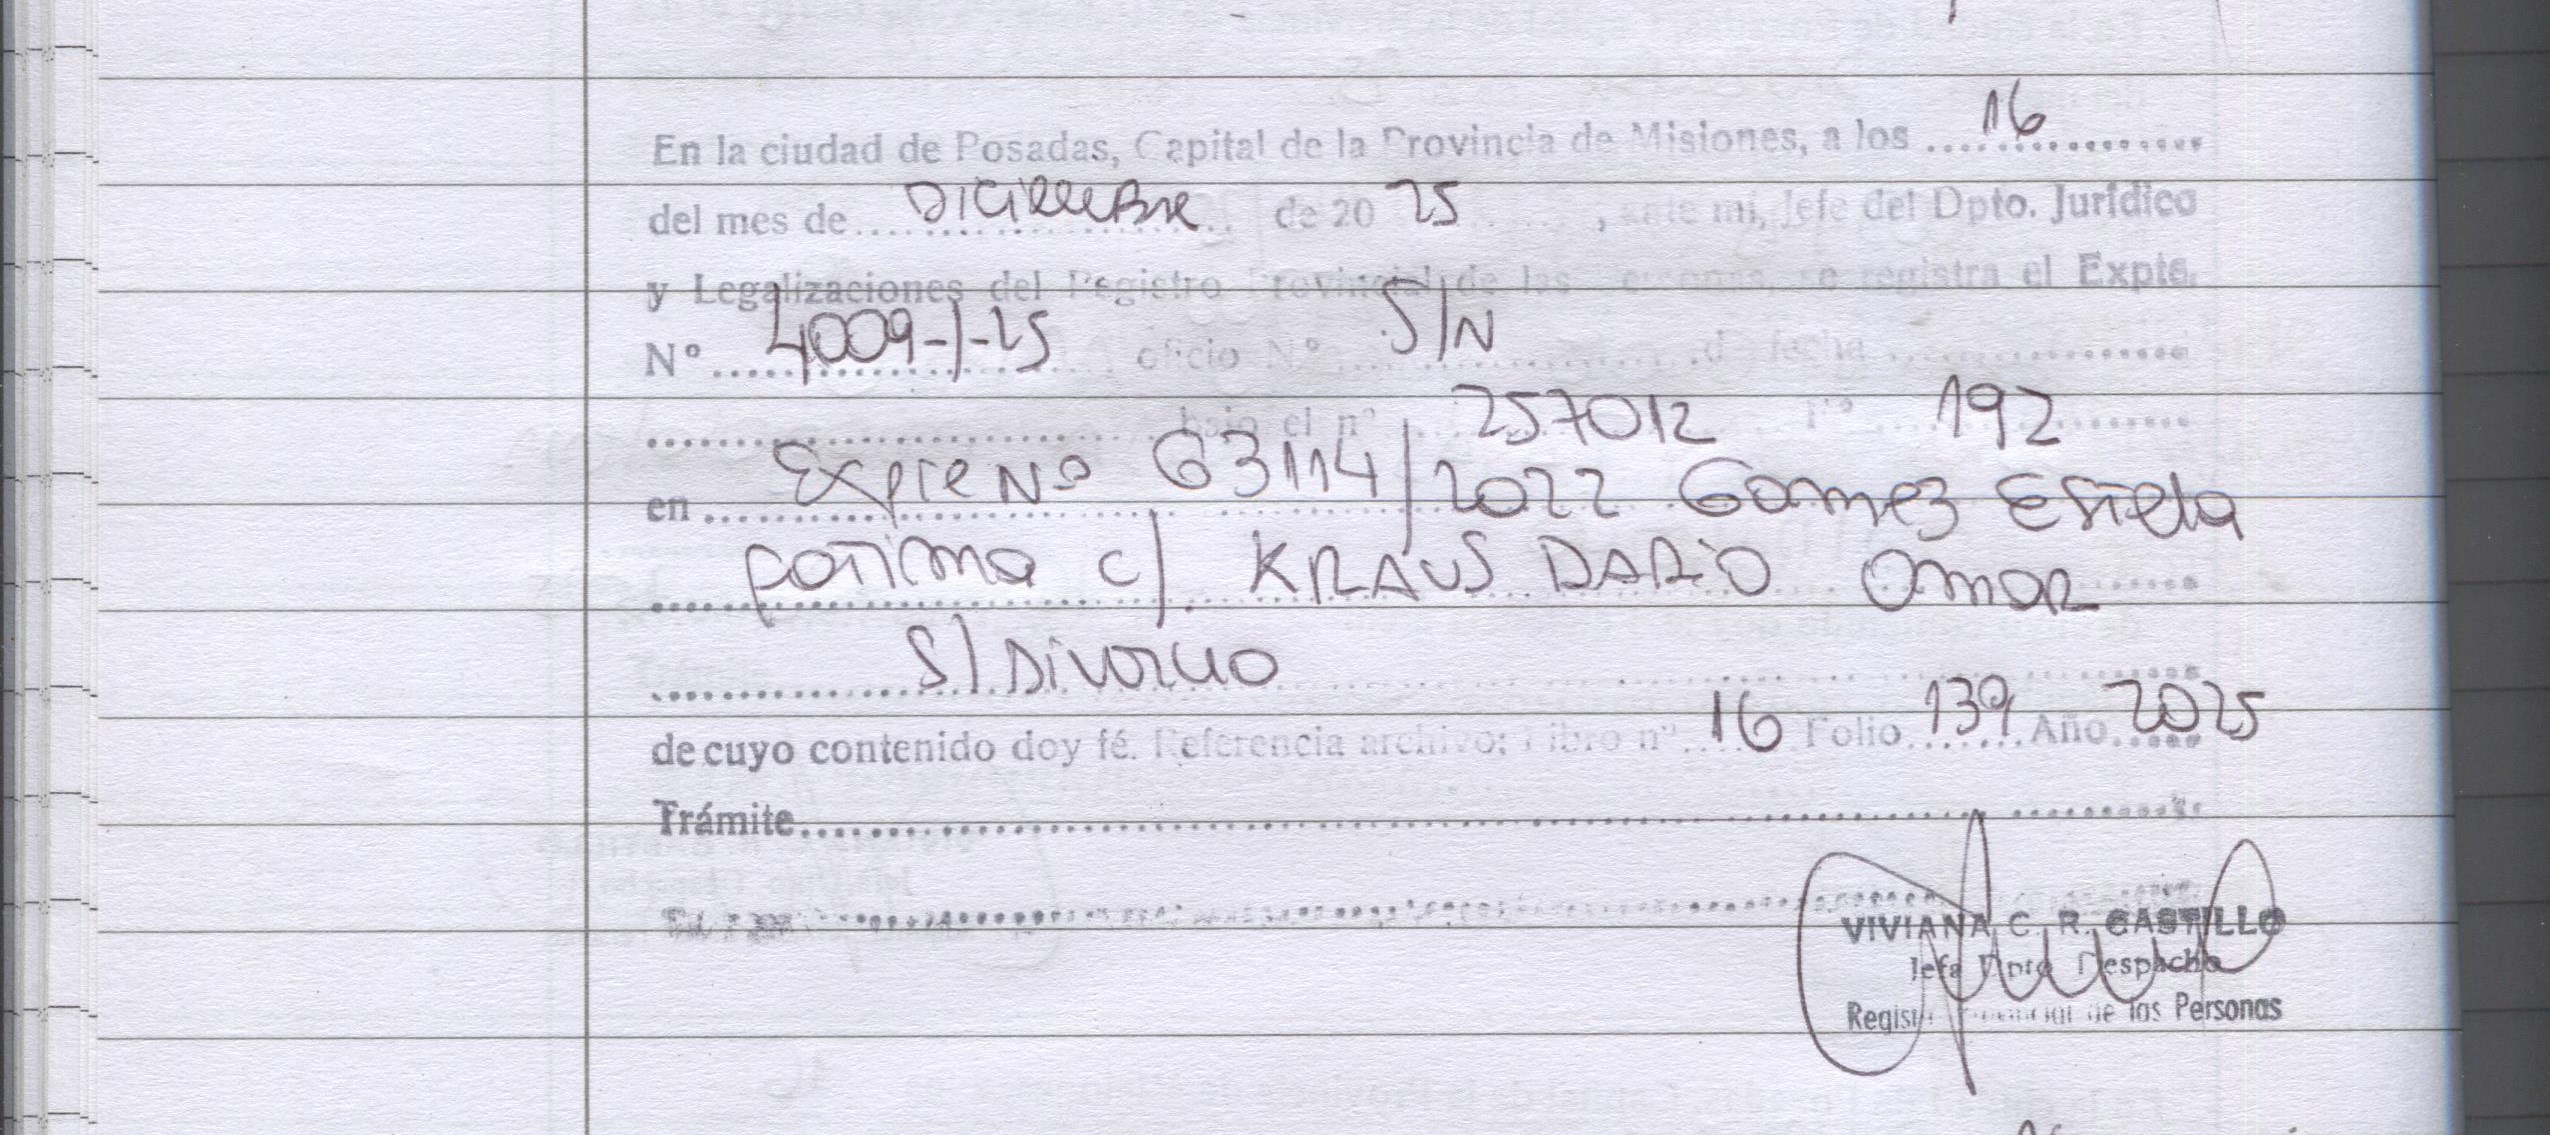 En la ciudad de Posadas, Capital de la Provincia de Misiones, a los 16
del mes de Diciembre de 20 25, ante mi, Jefe del Dpto. Jurídico
y Legalizaciones del Registro Provincial de las Personas, se registra el Expte.
N° 4009-1-25 oficio N° S/N de fecha
bajo el n° 257012 F° 192
en Expte Nº 63114/2022 Gomez Estela
Fatima c/ KRAUS DARIO Omar
S/ Divorcio
de cuyo contenido doy fé. Referencia archivo: Libro n° 16 Folio 139 Año 2025
Trámite
VIVIANA C. R. CASTILLO
Jefa Dpto Despacho
Registro Provincial de las Personas